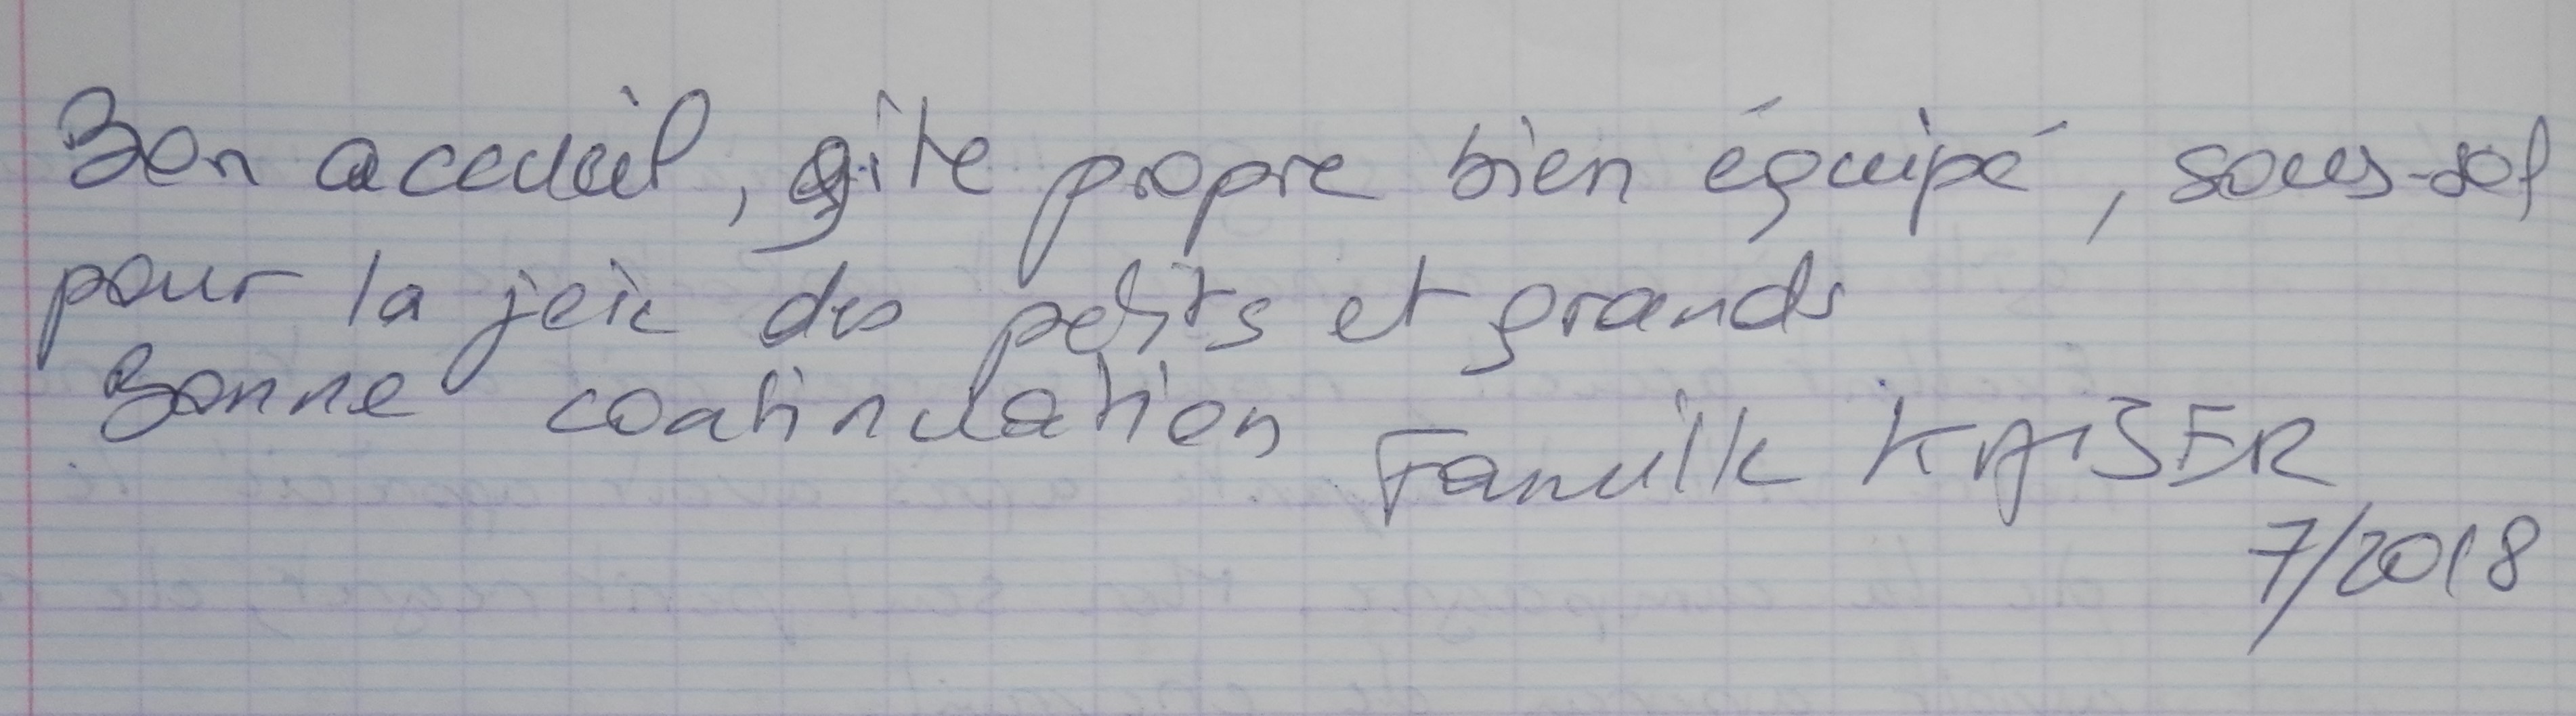 Bon accueil, gîte propre bien équipé, sous-sol
pour la joie des petits et grands
Bonne continuation Famille KAISER
7/2018